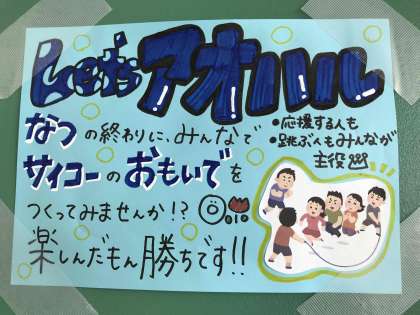 Let's アオハル
なつの終わりに、みんなで
サイコーのおもいでを
つくってみませんか!?
楽しんだもん勝ちです!!
•応援する人も
•跳ぶ人もみんなが
主役